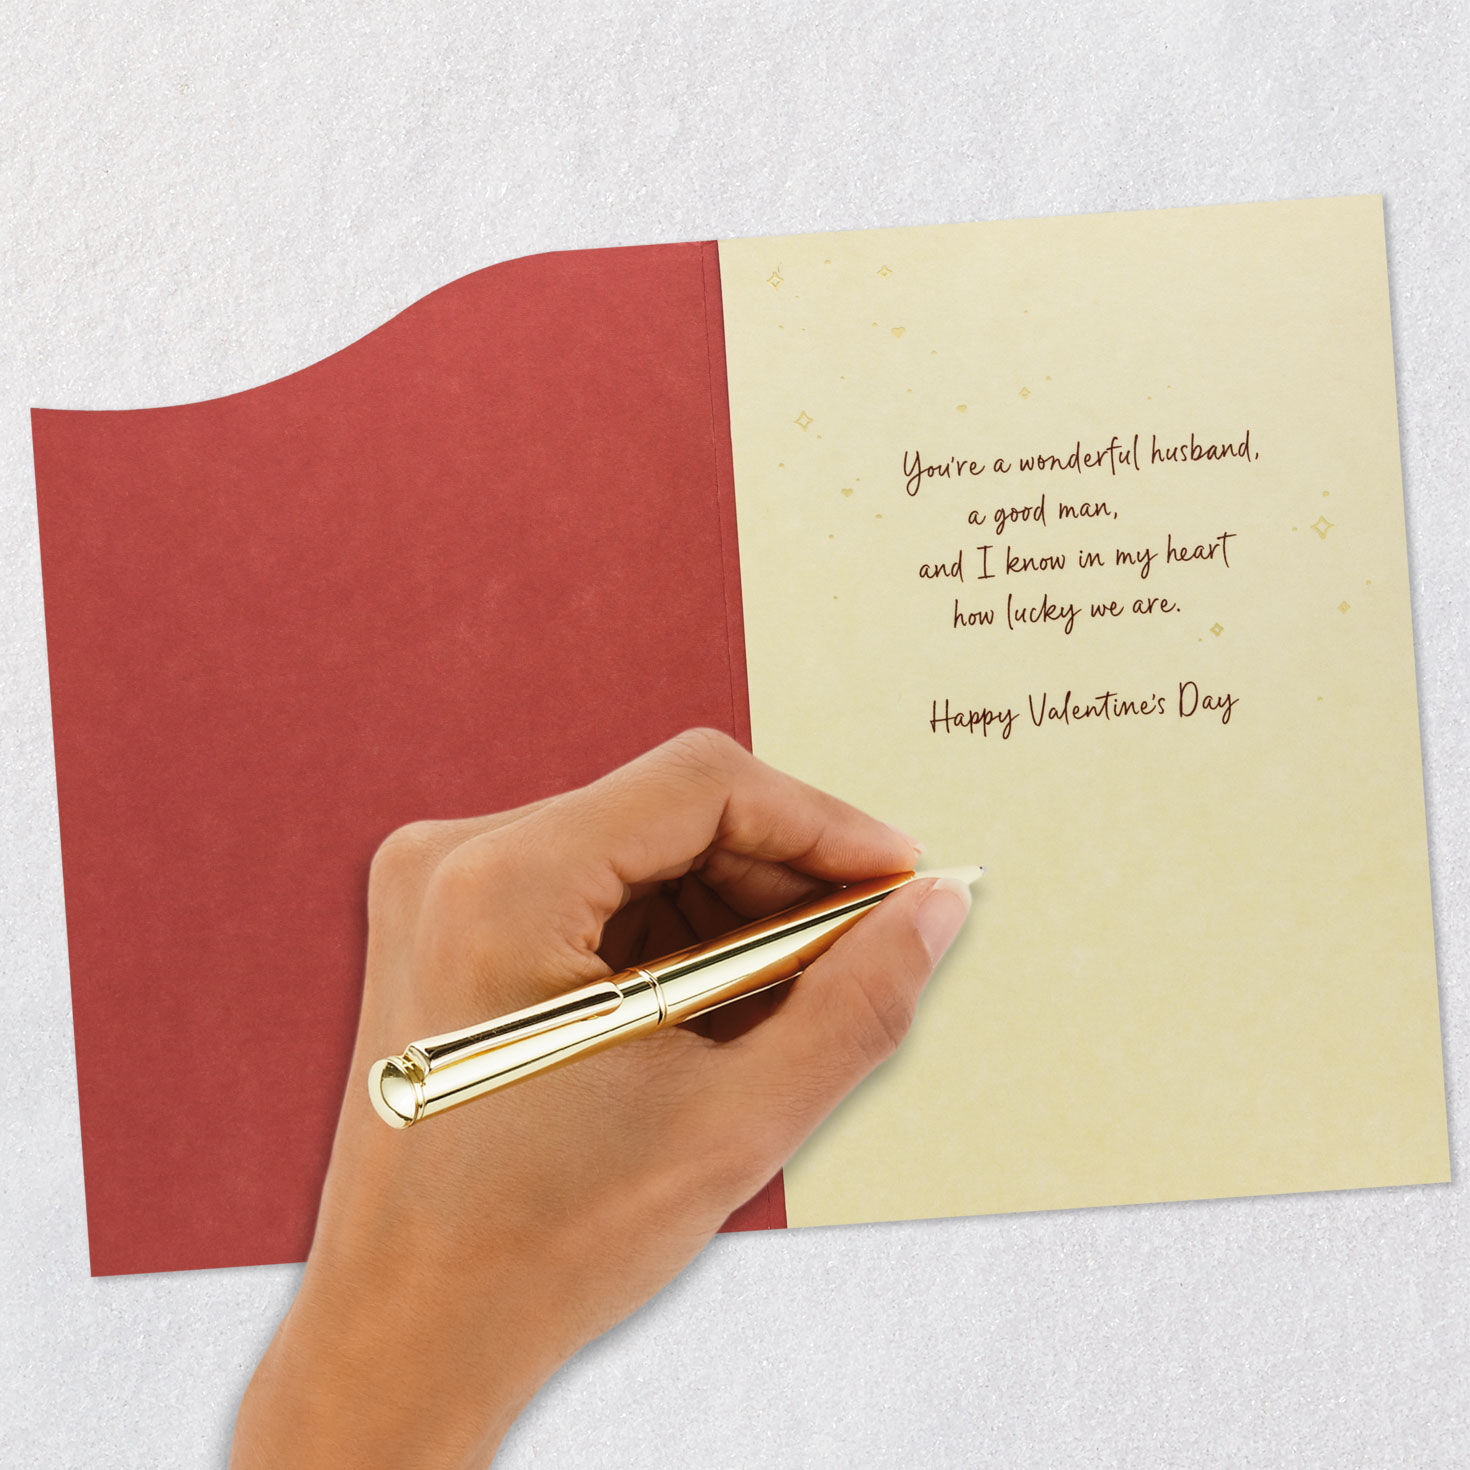 You're a wonderful husband,
a good man,
and I know in my heart
how lucky we are.
Happy Valentine's Day